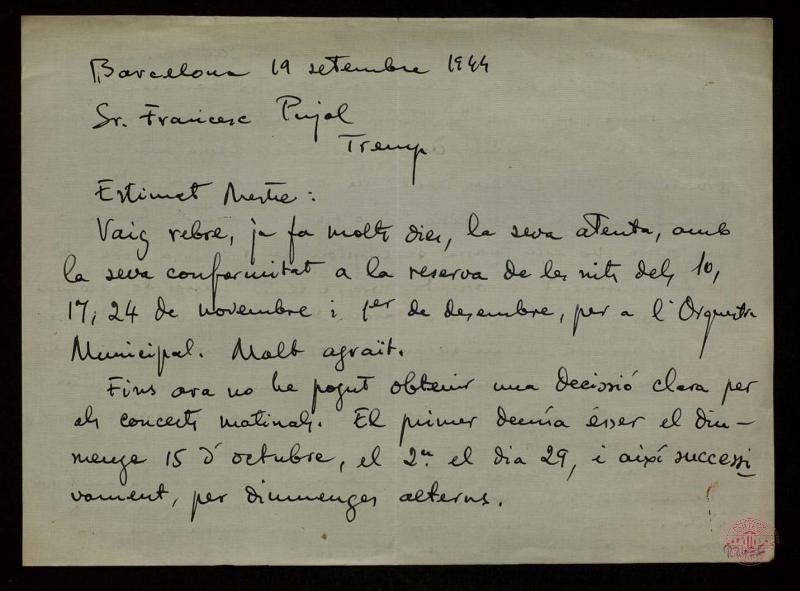 Barcelona 19 setembre 1944
Sr. Francesc Pujol
Tremp
Estimat Mestre:
Vaig rebre, ja fa molts dies, la seva atenta, amb
la seva conformitat a la reserva de les nits dels 10,
17, 24 de novembre i 1er de desembre, per a l'Orquestra
Municipal. Molt agraït.
Fins ara no he pogut obtenir una decissió clara per
als concerts matinals. El primer deuria ésser el diu-
menge 15 d'octubre, el 2n el dia 29, i així successi
vament, per diumenges alterns.